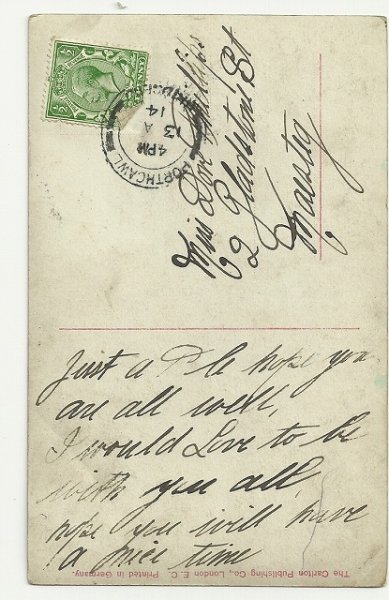 PORTHCAWL
4 PM
13 A
14
Miss
62 Gladstone St
Maesteg
Just a hope you
are all well,
I would Love to be
with you all,
hope you will have
a nice time
The Carlton Publishing Co., London E. C. Printed in Germany.